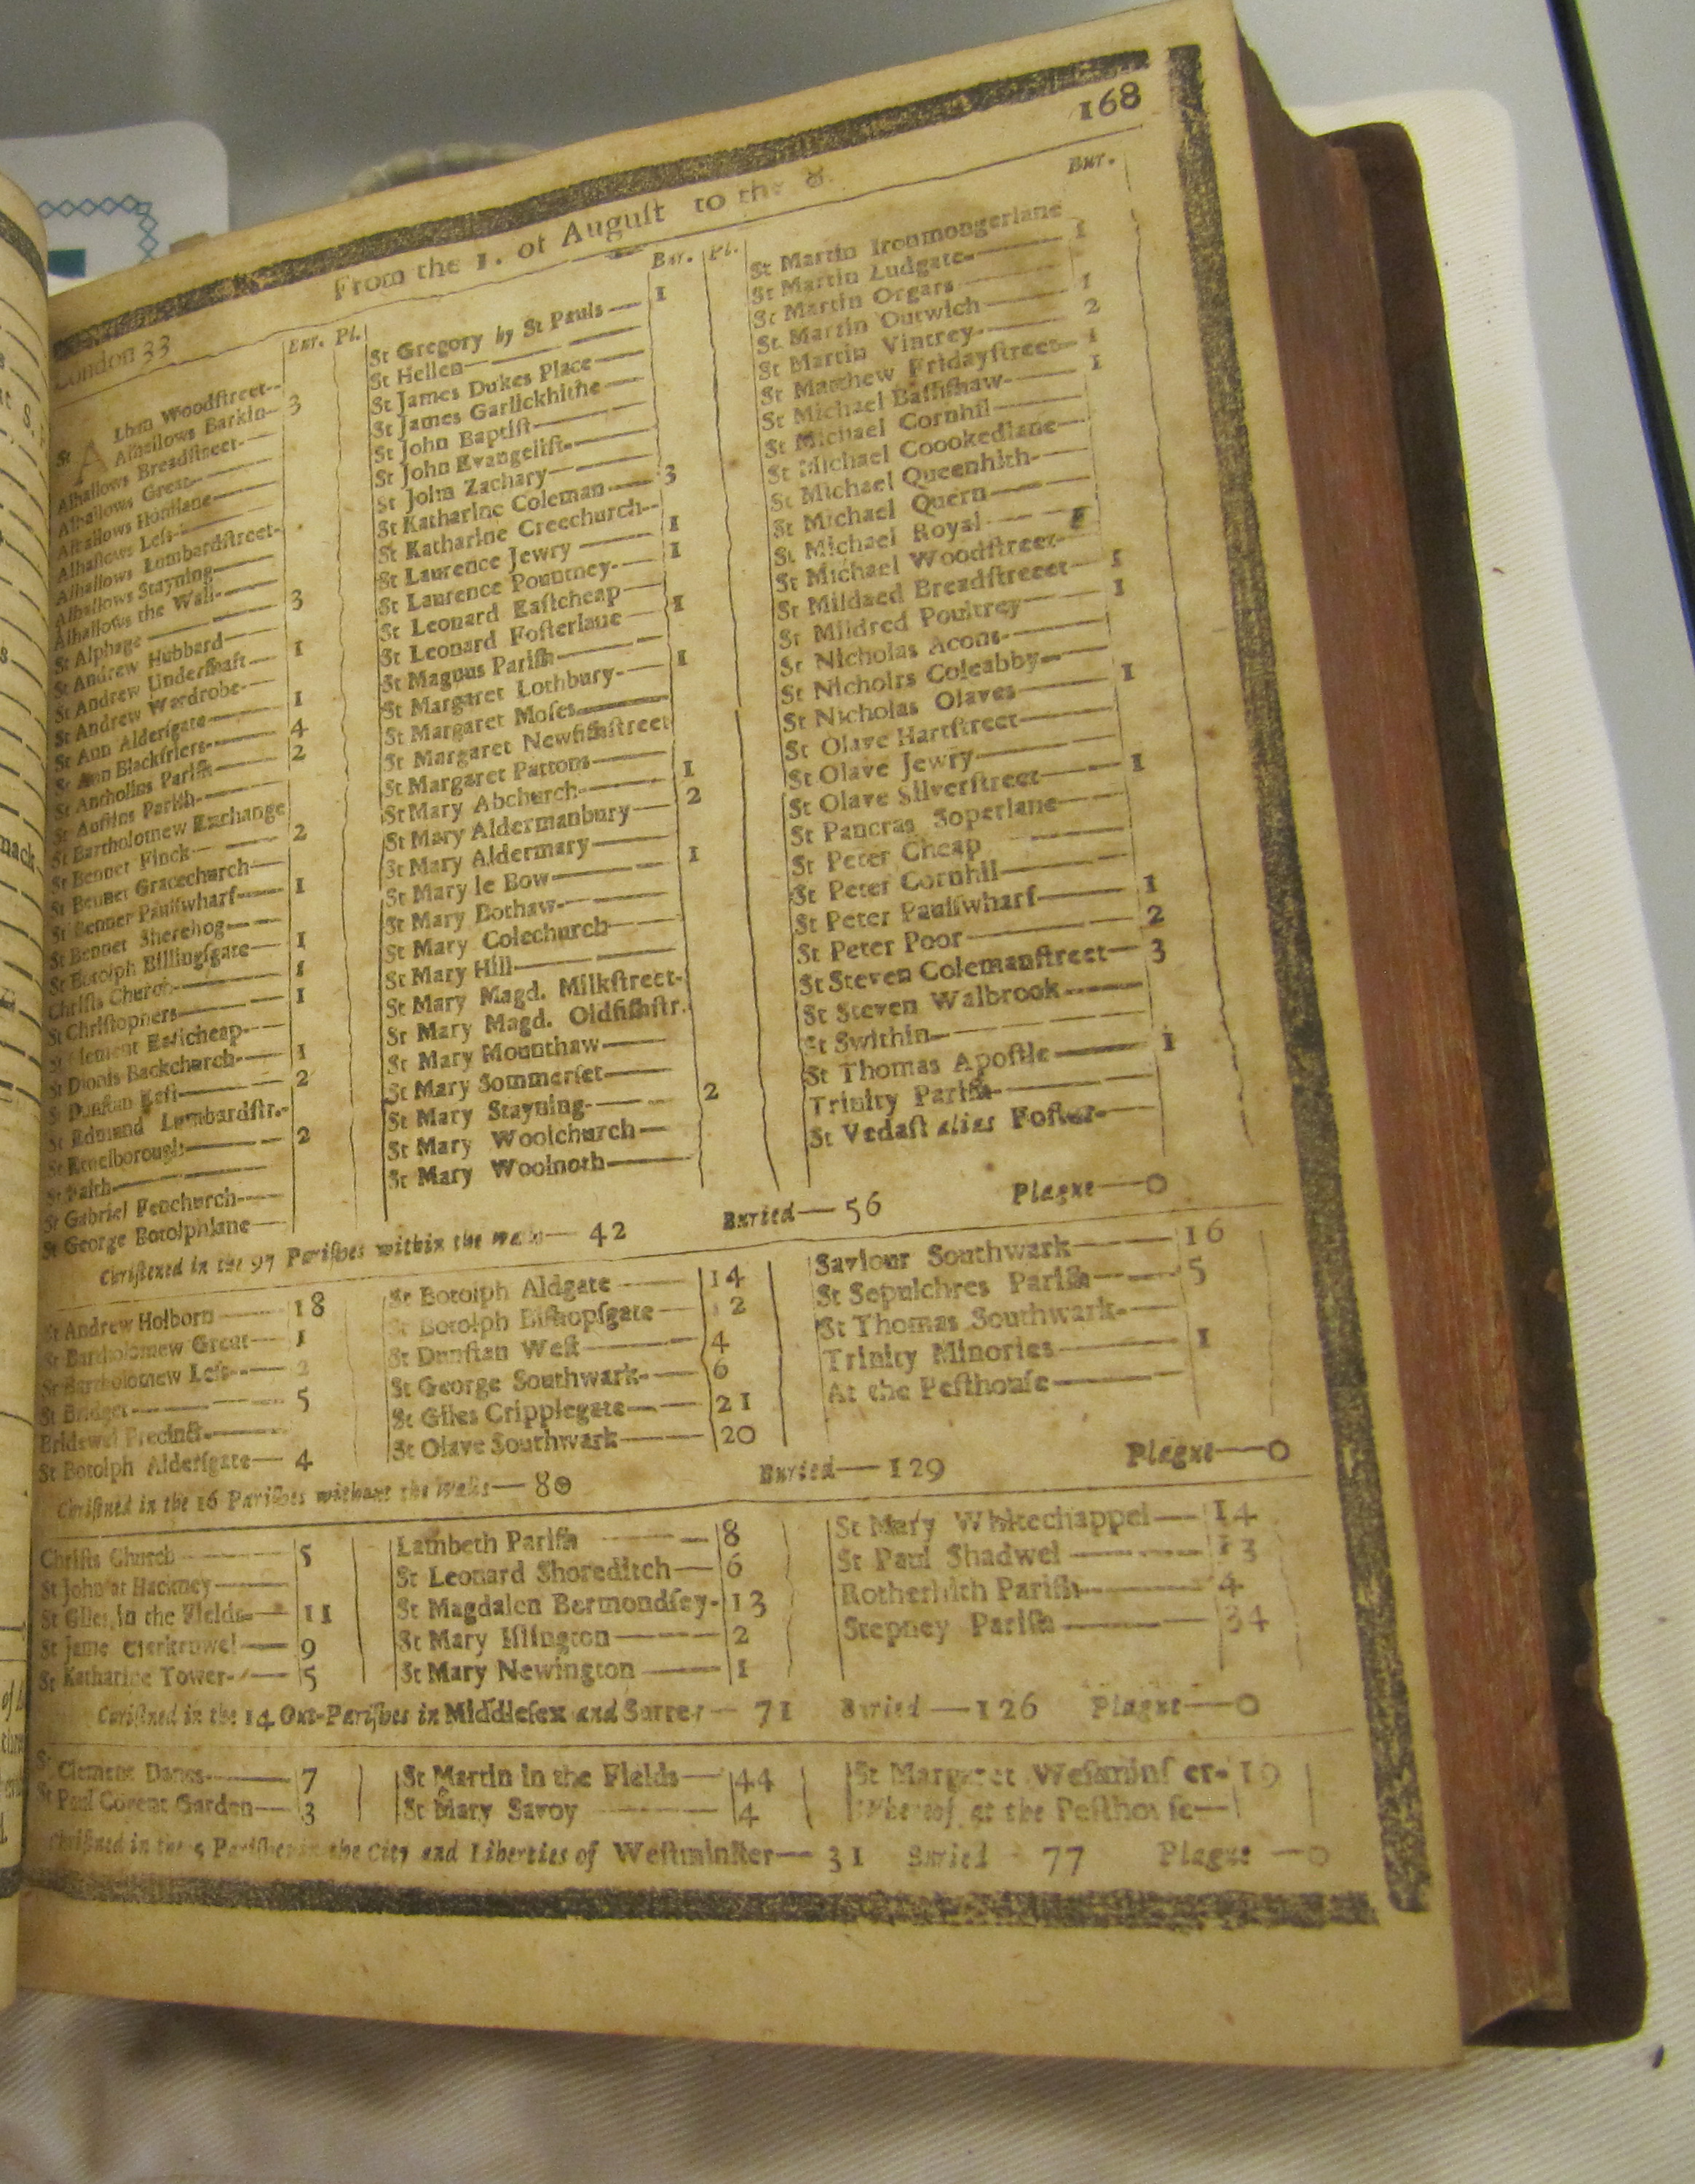 168
From the 1. of August to the 8.
London 33
Bur. Pl.
St Alban Woodſtreet--
Alhallows Barkin- 3
Alhallows Breadſtreet-
Alhallows Great
Alhallows Honilane
Alhallows Leſs
Alhallows Lumbardſtreet-
Alhallows Stayning
Alhallows the Wall- 3
St Alphage
St Andrew Hubbard 1
St Andrew Underſhaft
St Andrew Wardrobe- 1
St Ann Alderſgate 4
St Ann Blackfriers 2
St Antholins Pariſh
St Auſtins Pariſh
St Bartholomew Exchange 2
St Bennet Finck
St Bennet Gracechurch 1
St Bennet Paulſwharf
St Bennet Sherehog 1
St Botolph Billingſgate 1
Chriſts Church 1
St Chriſtophers
St Clement Eaſtcheap 1
St Dionis Backchurch 2
St Dunſtan Eaſt
St Edmund Lumbardſtr. 2
St Ethelborough
St Faith
St Gabriel Fenchurch
St George Botolphlane
Bur. Pl.
St Gregory by St Pauls 1
St Hellen
St James Dukes Place
St James Garlickhithe
St John Baptiſt
St John Evangeliſt
St John Zachary
St Katharine Coleman 3
St Katharine Creechurch
St Laurence Jewry 1
St Laurence Pountney 1
St Leonard Eaſtcheap
St Leonard Foſterlane 1
St Magnus Pariſh
St Margaret Lothbury 1
St Margaret Moſes
St Margaret Newfiſhſtreet
St Margaret Pattons
St Mary Abchurch 1
St Mary Aldermanbury 2
St Mary Aldermary
St Mary le Bow 1
St Mary Bothaw
St Mary Colechurch
St Mary Hill
St Mary Magd. Milkſtreet
St Mary Magd. Oldfiſhſtr.
St Mary Mounthaw
St Mary Sommerſet
St Mary Stayning 2
St Mary Woolchurch
St Mary Woolnoth
Bur.
St Martin Ironmongerlane
St Martin Ludgate 1
St Martin Orgars
St Martin Outwich 1
St Martin Vintrey 2
St Matthew Fridayſtreet 1
St Michael Baſſiſhaw 1
St Michael Cornhil
St Michael Coookedlane
St Michael Queenhith
St Michael Quern
St Michael Royal
St Michael Woodſtreet
St Mildaed Breadſtreeet 1
St Mildred Poultrey 1
St Nicholas Acons
St Nicholrs Coleabby
St Nicholas Olaves 1
St Olave Hartſtreet
St Olave Jewry
St Olave Silverſtreet 1
St Pancras Soperlane
St Peter Cheap
St Peter Cornhil
St Peter Paulſwharf 1
St Peter Poor 2
St Steven Colemanſtreet 3
St Steven Walbrook
St Swithin
St Thomas Apoſtle 1
Trinity Pariſh
St Vedaſt alias Foſter
Chriſtened in the 97 Pariſhes within the walls— 42 Buried— 56 Plague—0
St Andrew Holborn 18
St Bartholomew Great 1
St Bartholomew Leſs 2
St Bridget 5
Bridewel Precinct
St Botolph Alderſgate 4
St Botolph Aldgate 14
St Botolph Biſhopſgate 2
St Dunſtan Weſt 4
St George Southwark 6
St Giles Cripplegate 21
St Olave Southwark 20
Saviour Southwark 16
St Sepulchres Pariſh 5
St Thomas Southwark
Trinity Minories 1
At the Peſthouſe
Chriſtned in the 16 Pariſhes without the Walls— 80 Buried—129 Plague—0
Chriſts Church 5
St John at Hackney
St Giles in the Fields 11
St Jame Clerkenwel 9
St Katharine Tower 5
Lambeth Pariſh 8
St Leonard Shoreditch 6
St Magdalen Bermondſey 13
St Mary Iſlington 2
St Mary Newington 1
St Mary Whitechappel 14
St Paul Shadwel 13
Rotherhith Pariſh 4
Stepney Pariſh 34
Chriſtned in the 14 Out-Pariſhes in Middleſex and Surrey— 71 Buried —126 Plague—0
St Clement Danes 7
St Paul Covent Garden 3
St Martin in the Fields 44
St Mary Savoy 4
St Margaret Weſtminſ er- 19
Whereof at the Peſthouſe
Chriſtned in the 5 Pariſhes in the City and Liberties of Weſtminſter— 31 Buried 77 Plague —0